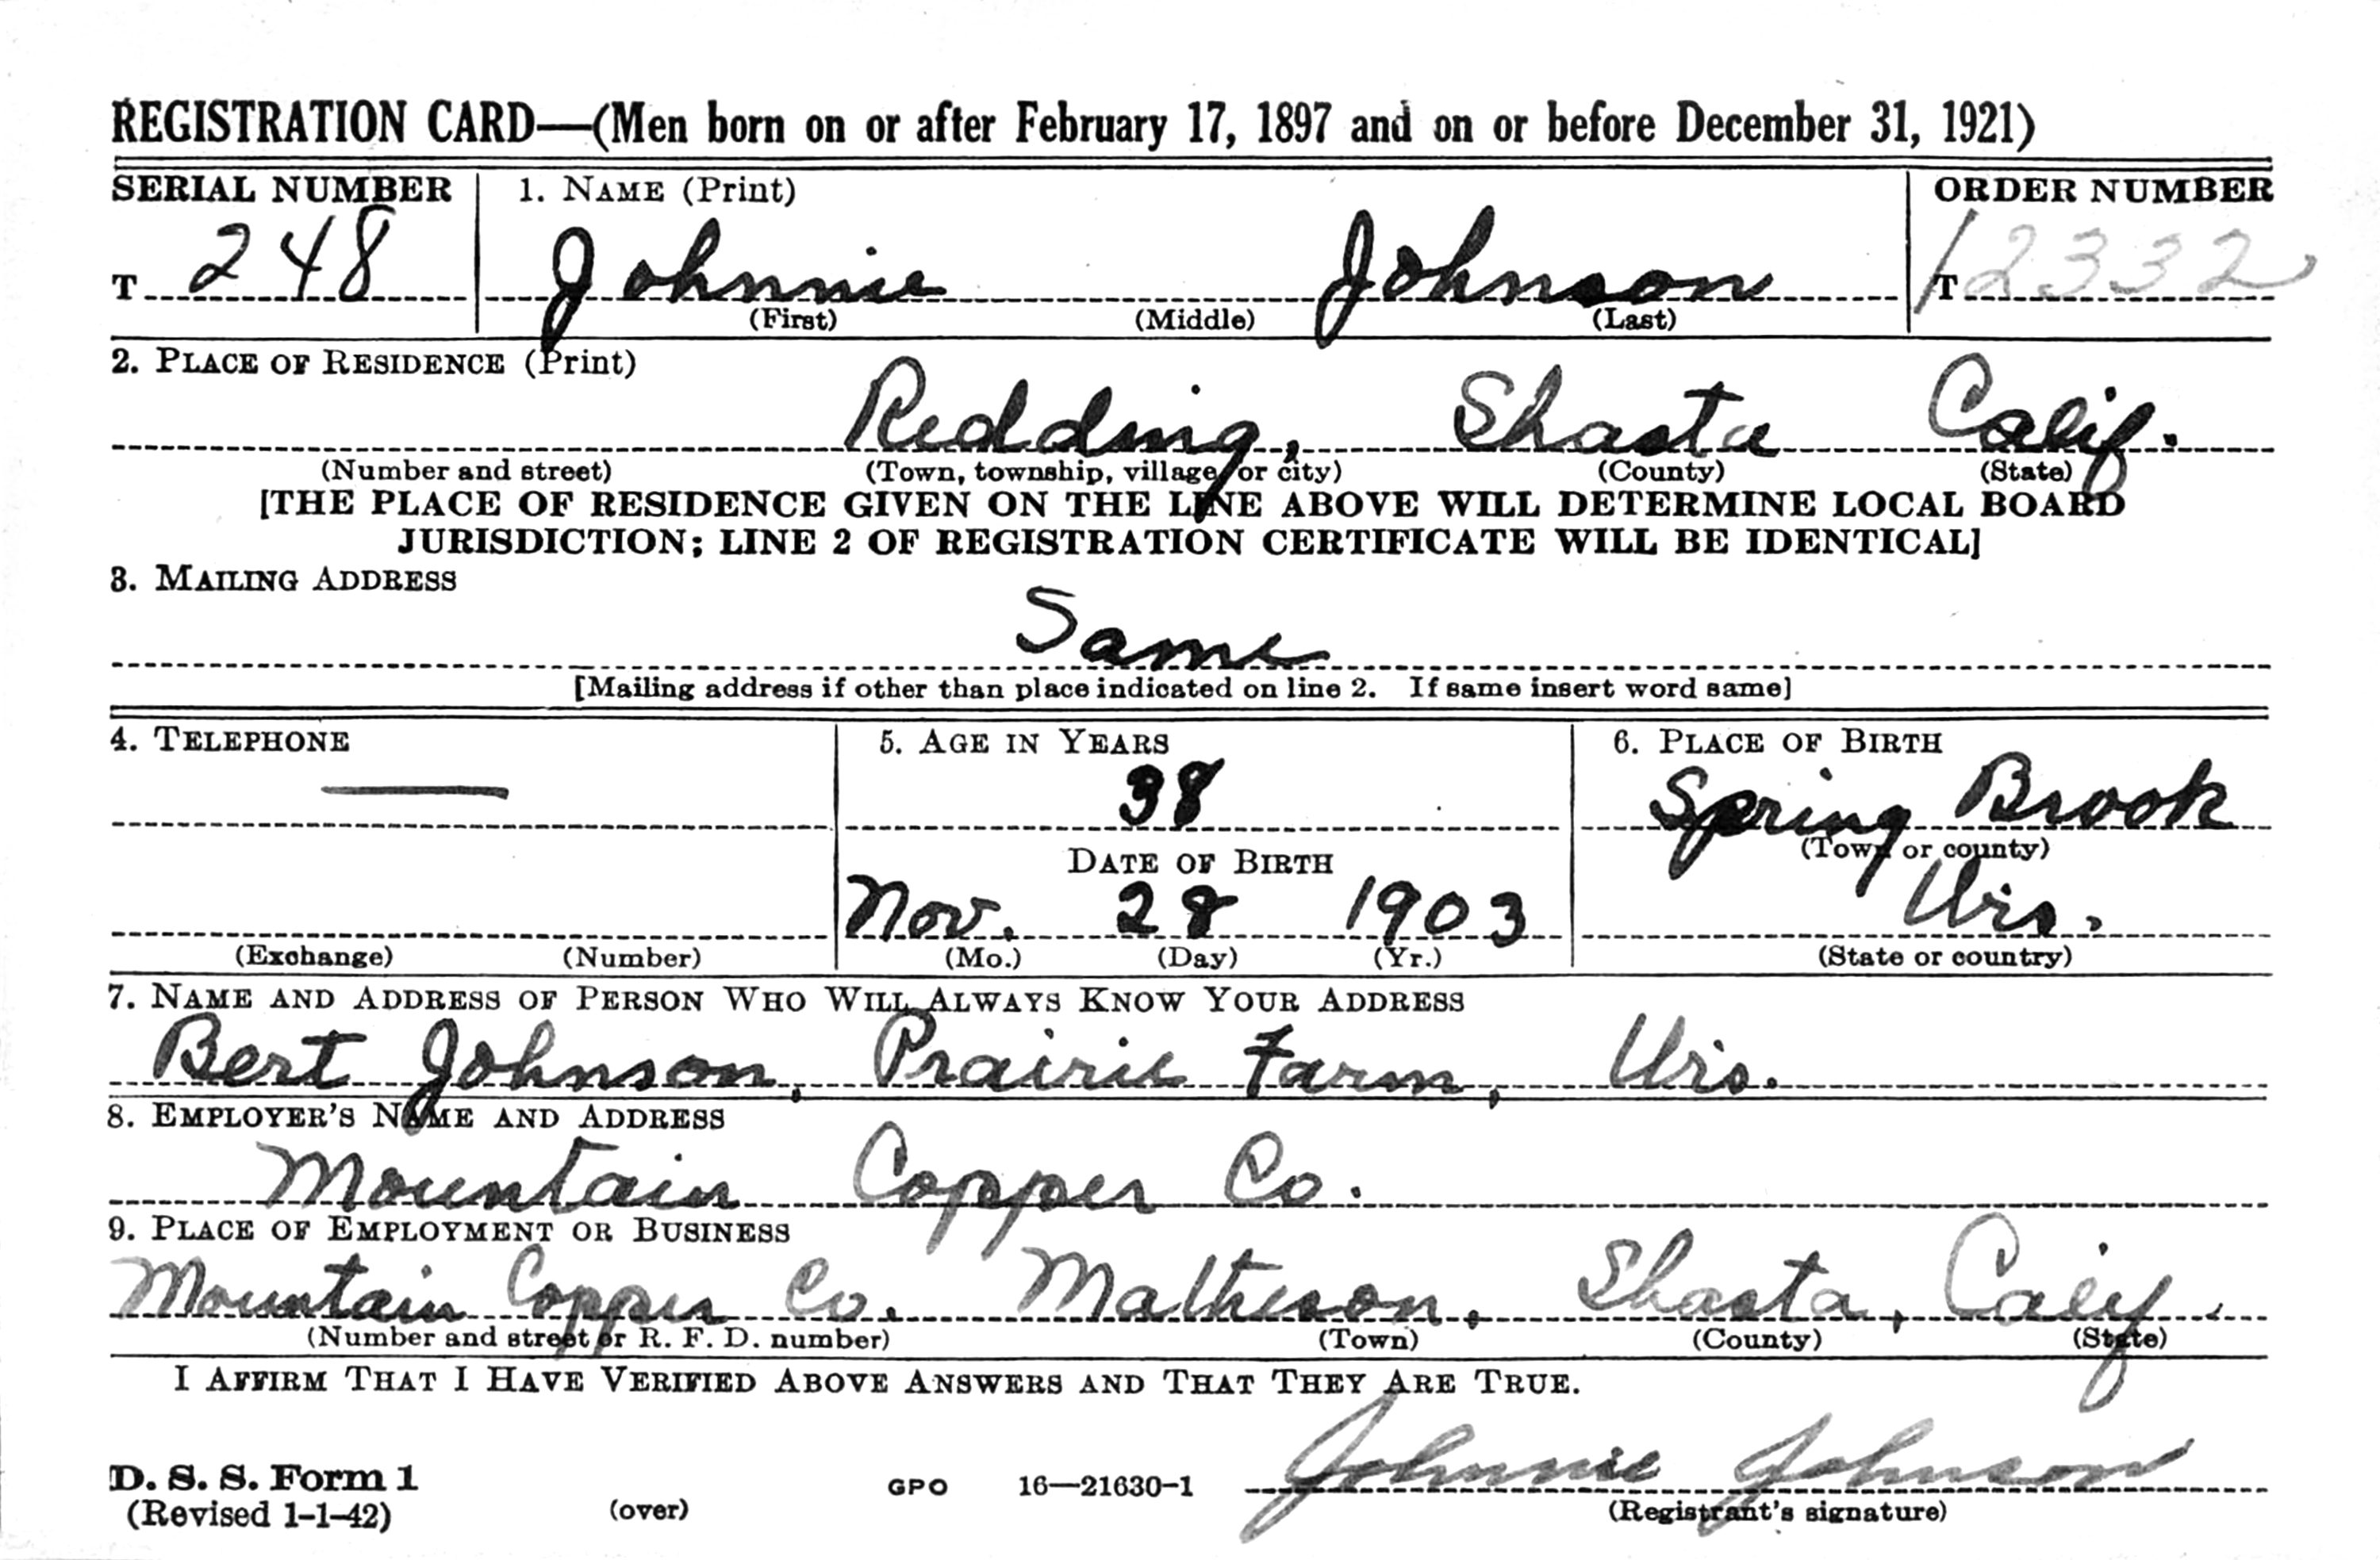 REGISTRATION CARD—(Men born on or after February 17, 1897 and on or before December 31, 1921)
SERIAL NUMBER 1. NAME (Print) ORDER NUMBER
T 248 Johnnie Johnson T 12332
(First) (Middle) (Last)
2. PLACE OF RESIDENCE (Print)
Redding, Shasta Calif.
(Number and street) (Town, township, village, or city) (County) (State)
[THE PLACE OF RESIDENCE GIVEN ON THE LINE ABOVE WILL DETERMINE LOCAL BOARD
JURISDICTION; LINE 2 OF REGISTRATION CERTIFICATE WILL BE IDENTICAL]
3. MAILING ADDRESS
Same
[Mailing address if other than place indicated on line 2. If same insert word same]
4. TELEPHONE 5. AGE IN YEARS 6. PLACE OF BIRTH
— 38 Spring Brook
(Town or county)
DATE OF BIRTH
Nov. 28 1903 Wis.
(Exchange) (Number) (Mo.) (Day) (Yr.) (State or country)
7. NAME AND ADDRESS OF PERSON WHO WILL ALWAYS KNOW YOUR ADDRESS
Bert Johnson, Prairie Farm, Wis.
8. EMPLOYER'S NAME AND ADDRESS
Mountain Copper Co.
9. PLACE OF EMPLOYMENT OR BUSINESS
Mountain Copper Co. Matheson, Shasta, Calif.
(Number and street or R. F. D. number) (Town) (County) (State)
I AFFIRM THAT I HAVE VERIFIED ABOVE ANSWERS AND THAT THEY ARE TRUE.
Johnnie Johnson
D. S. S. Form 1 GPO 16—21630-1
(Revised 1-1-42) (over) (Registrant's signature)